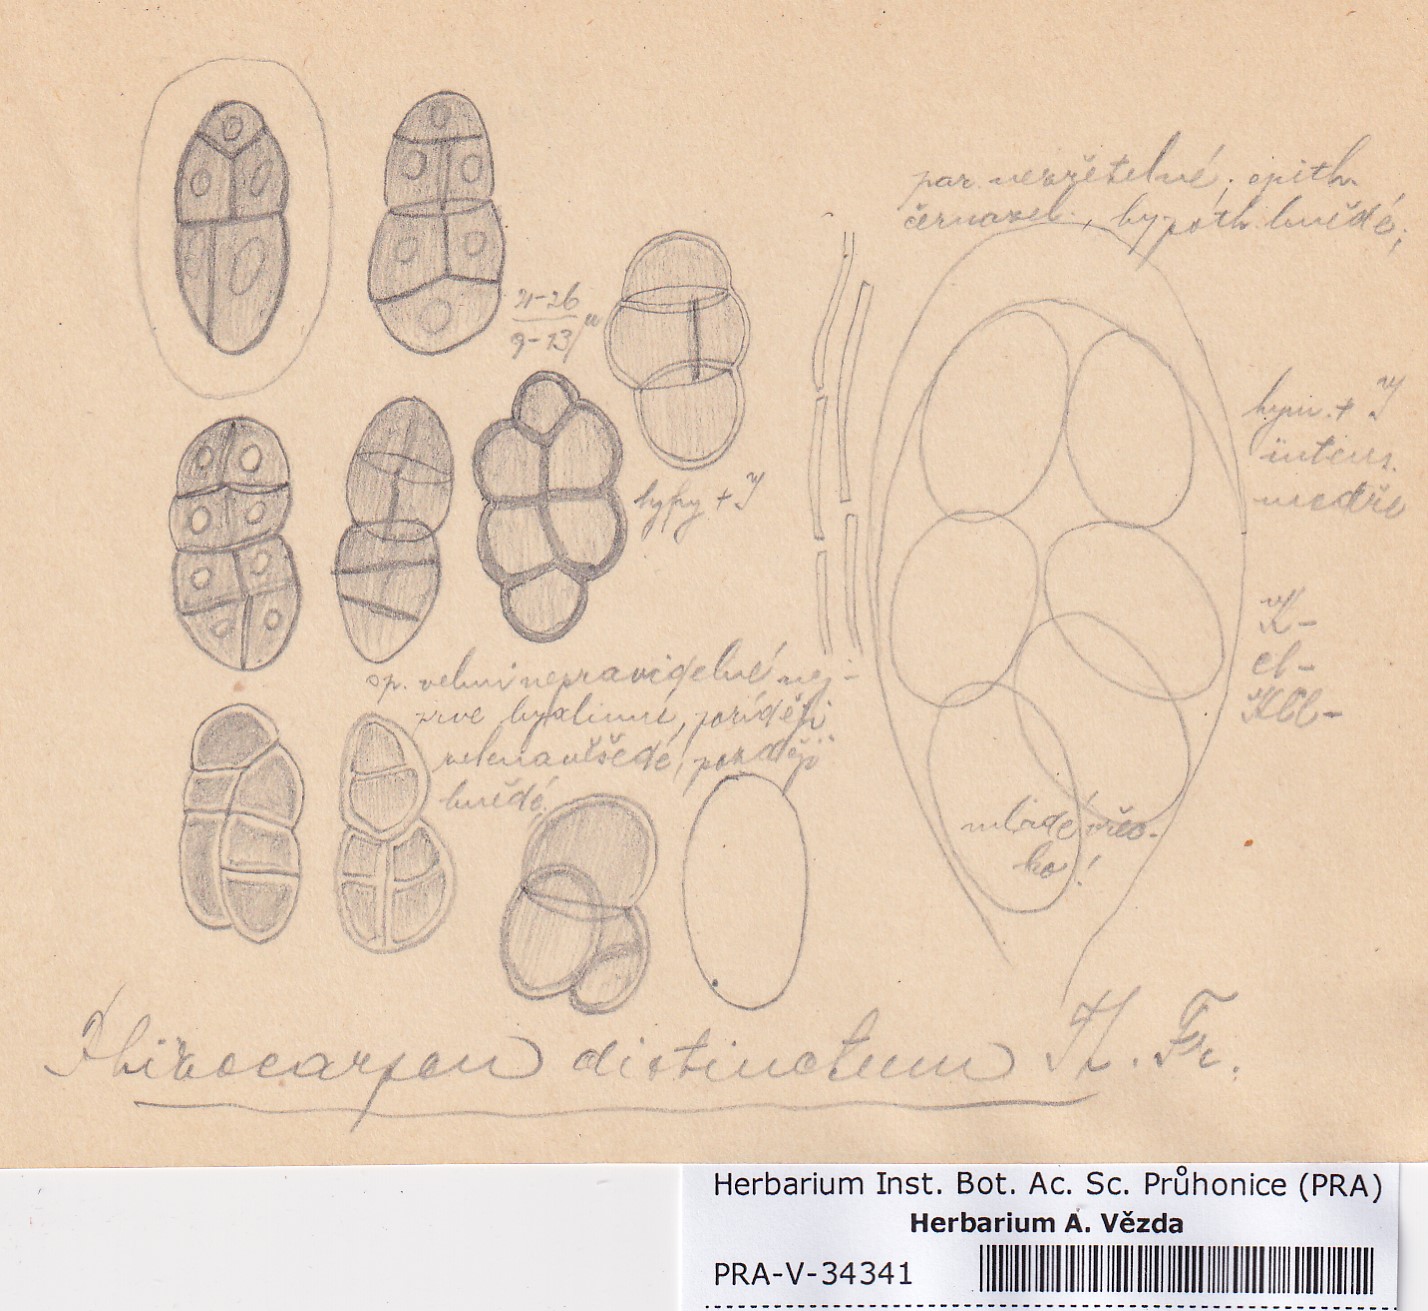 par. nezřetelné; epith.
černozel., hypoth. hnědé;
21-26
9-13 µ
hym. + J
intens.
modře
hyfy + J
K-
Cl-
KCl-
sp. velmi nepravidelné nej-
prve hyalinní, později
zelenavěšedé, později
hnědé.
mladé vřec-
ko!
Rhizocarpon distinctum Th. Fr.
Herbarium Inst. Bot. Ac. Sc. Průhonice (PRA)
Herbarium A. Vězda
PRA-V-34341